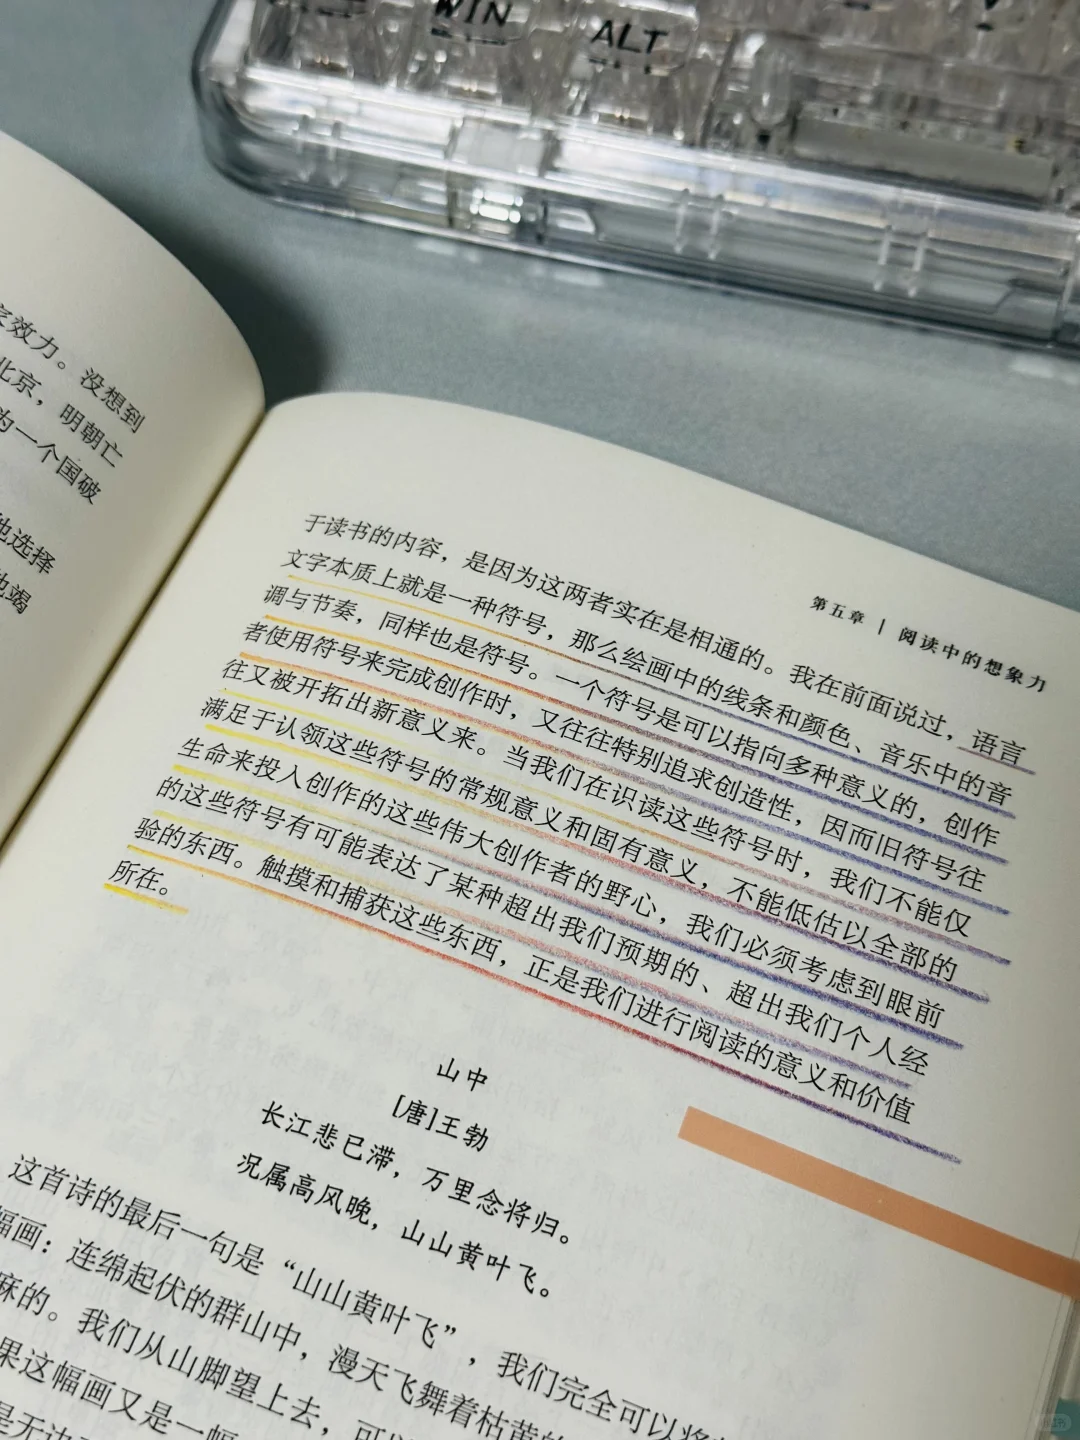 WIN
ALT
效力。没想到
北京，明朝亡
为一个国破
他选择
他竭
第五章 | 阅读中的想象力
于读书的内容，是因为这两者实在是相通的。我在前面说过，语言
文字本质上就是一种符号，那么绘画中的线条和颜色、音乐中的音
调与节奏，同样也是符号。一个符号是可以指向多种意义的，创作
者使用符号来完成创作时，又往往特别追求创造性，因而旧符号往
往又被开拓出新意义来。当我们在识读这些符号时，我们不能仅
满足于认领这些符号的常规意义和固有意义，不能低估以全部的
生命来投入创作的这些伟大创作者的野心，我们必须考虑到眼前
的这些符号有可能表达了某种超出我们预期的、超出我们个人经
验的东西。触摸和捕获这些东西，正是我们进行阅读的意义和价值
所在。
山中
[唐]王勃
长江悲已滞，万里念将归。
况属高风晚，山山黄叶飞。
这首诗的最后一句是“山山黄叶飞”，我们完全可以将
幅画：连绵起伏的群山中，漫天飞舞着枯黄的
麻的。我们从山脚望上去，可
果这幅画又是一幅
是无边